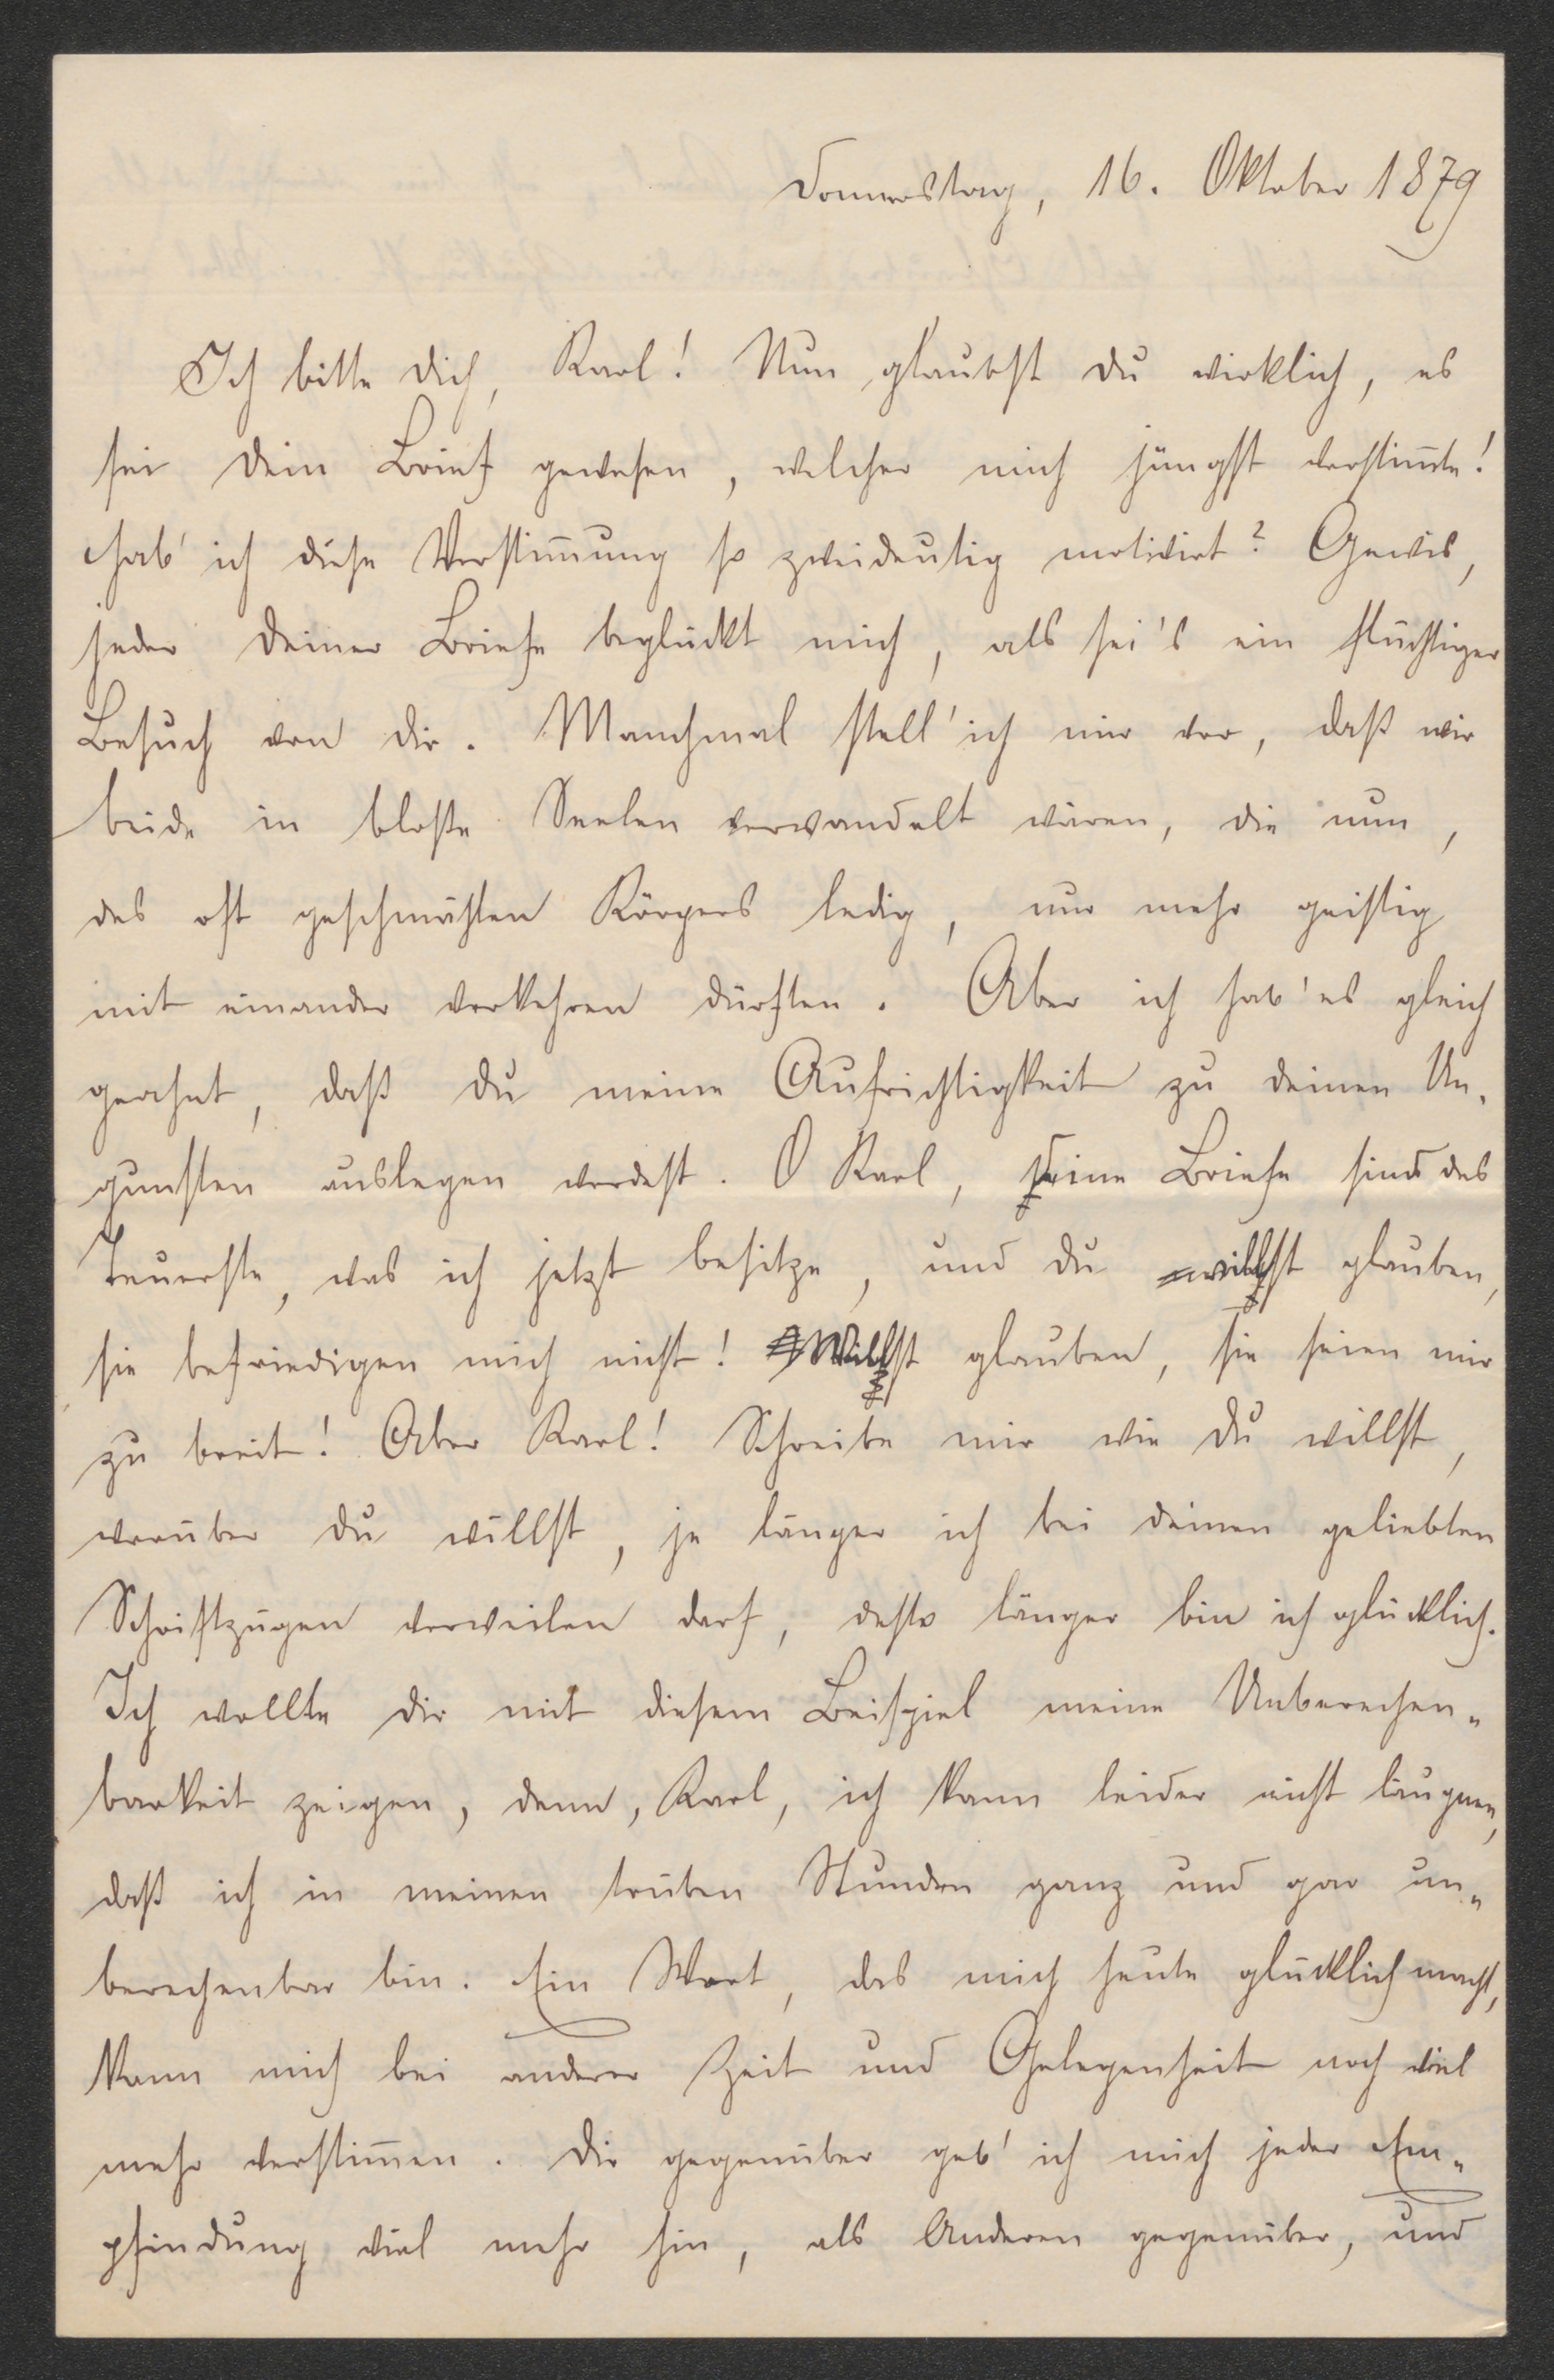 Donnerstag, 16. Oktober 1879
Ich bitte dich, Karl! Nun glaubst du wirklich, es
sei dein Brief gewesen, welcher mich jüngst verstim̅te!
Hab' ich diese Verstim̅ung so zweideutig motivirt? Gewis,
jeder deiner Briefe beglückt mich, als sei's ein flüchtiger
Besuch von dir. Manchmal stell' ich mir vor, daß wir
beide in bloße Seelen verwandelt wären, die nun,
des oft geschmähten Körpers ledig, nur mehr geistig
mit einander verkehren dürften. Aber ich hab' es gleich
geahnt, daß du meine Aufrichtigkeit zu deinen Un-
gunsten auslegen werdest. O Karl, deine Briefe sind das
Teuerste, was ich jetzt besitze, und du willst glauben,
sie befriedigen mich nicht! Willst glauben, sie seien mir
zu breit! Aber Karl! Schreibe mir wie du willst,
worüber du willst, je länger ich bei deinen geliebten
Schriftzügen verweilen darf, desto länger bin ich glücklich.
Ich wollte dir mit diesem Beispiel meine Unberechen-
barkeit zeigen, denn, Karl, ich kann leider nicht läugnen,
daß ich in meinen trüben Stunden ganz und gar un-
berechenbar bin. Ein Wort, das mich heute glücklich macht,
kann mich bei anderer Zeit und Gelegenheit noch viel
mehr verstim̅en. Dir gegenüber geb' ich mich jeder Em-
pfindung viel mehr hin, als Anderen gegenüber, und